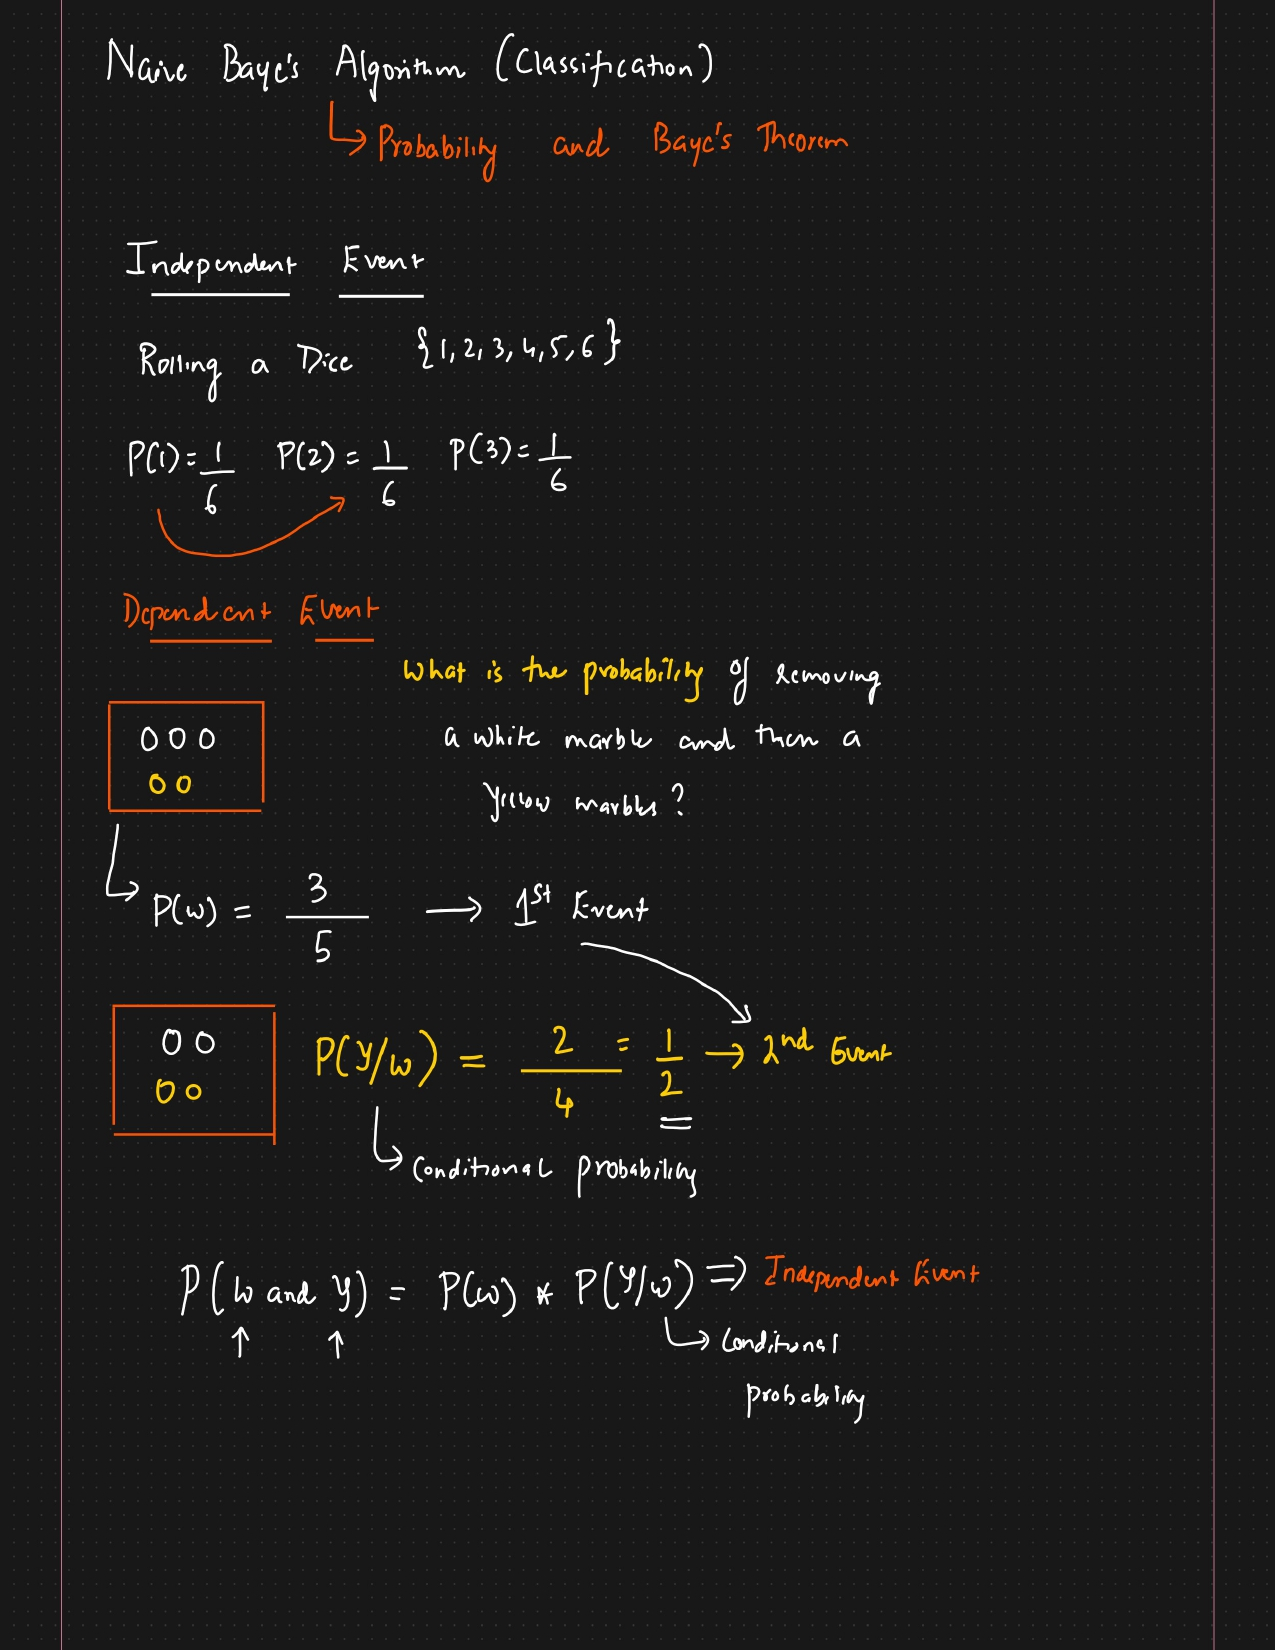 Naive Baye's Algorithm (Classification)
Probability and Baye's Theorem
Independent Event
Rolling a Dice {1, 2, 3, 4, 5, 6}
P(1) = 1/6 P(2) = 1/6 P(3) = 1/6
Dependent Event
What is the probability of removing
a white marble and then a
yellow marbles?
P(w) = 3/5 → 1st Event
P(Y/w) = 2/4 = 1/2 → 2nd Event
Conditional probability
P(w and y) = P(w) * P(Y/w) ⇒ Independent Event
Conditional
probability